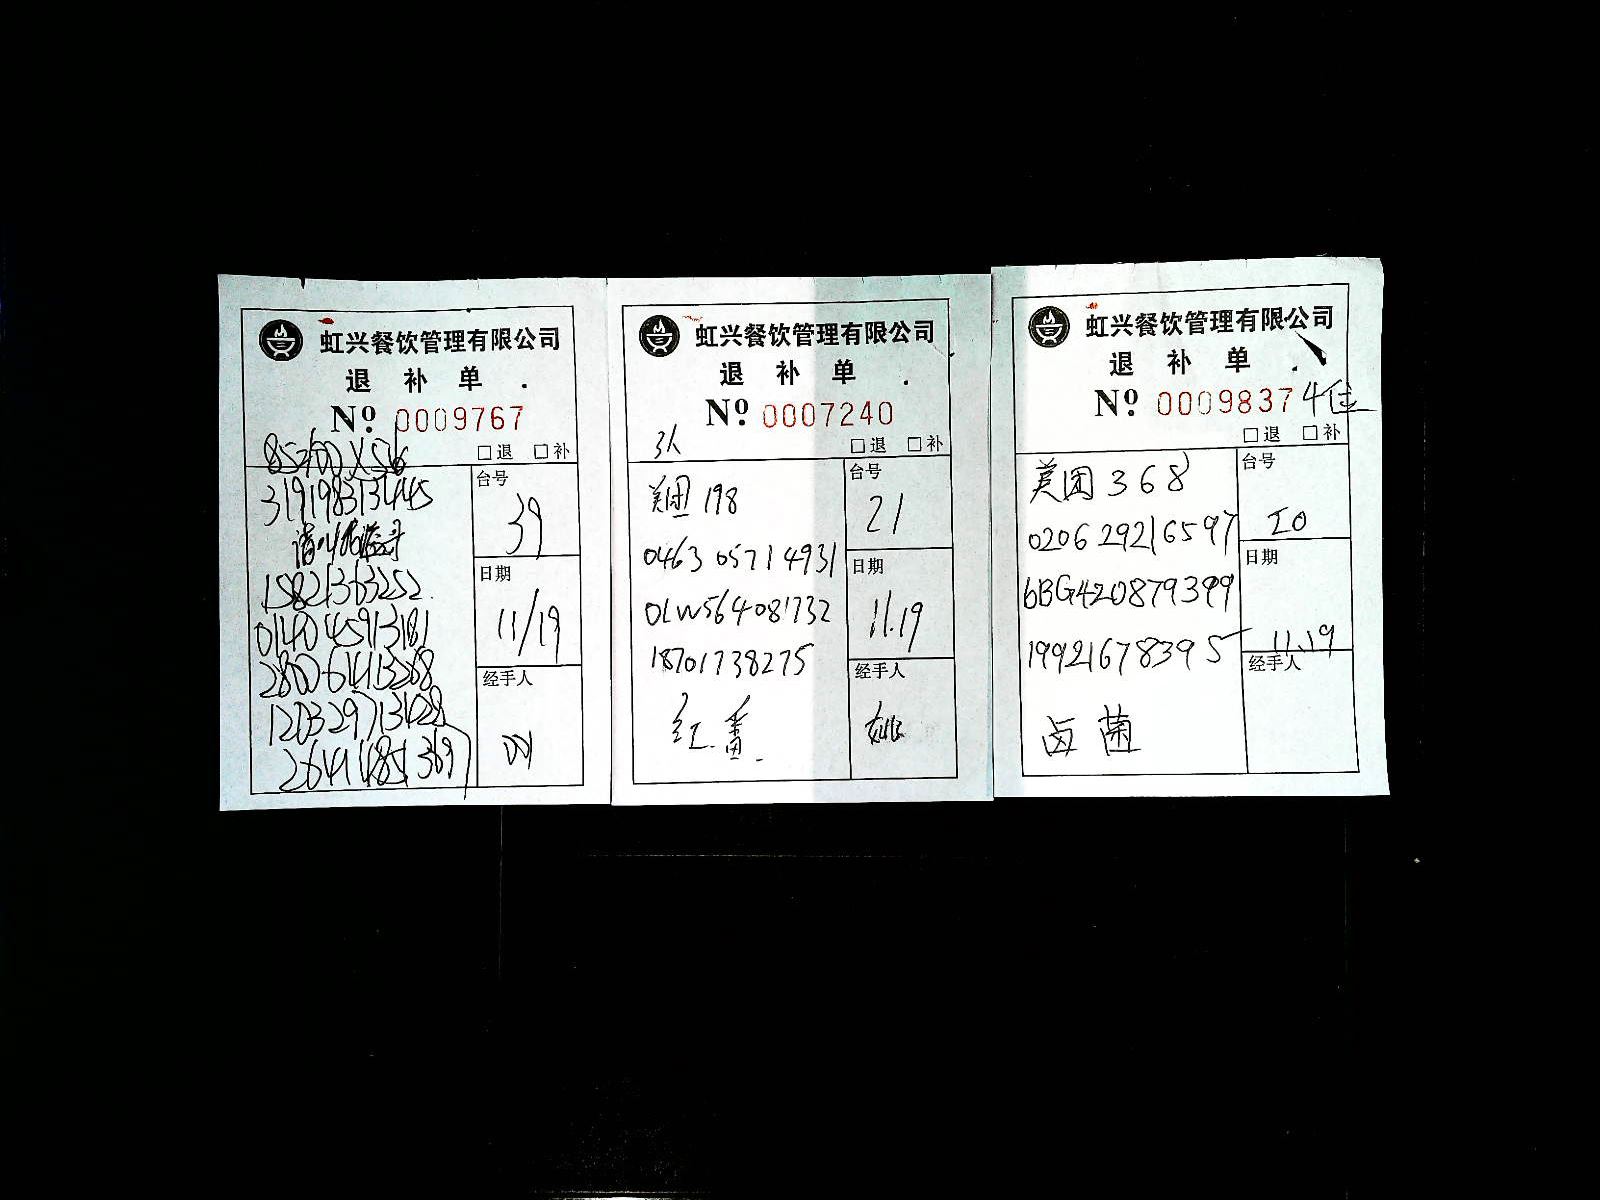 虹兴餐饮管理有限公司
退 补 单 .
Nº 0009767
□退 □补
台号
39
3191983134445
15821363252
日期
11/19
014045913181
280061413268
经手人
虹兴餐饮管理有限公司
退 补 单 .
Nº 0007240
3人
□退 □补
台号
21
美团 198
0463 0571 4931
日期
11.19
0LW564081732
18701738275
经手人
姚
红.番.
虹兴餐饮管理有限公司
退 补 单 .
Nº 0009837 4位
□退 □补
台号
20
美团 368
0206 29216597
日期
11.19
bBG420879399
19921678395
经手人
卤 菌